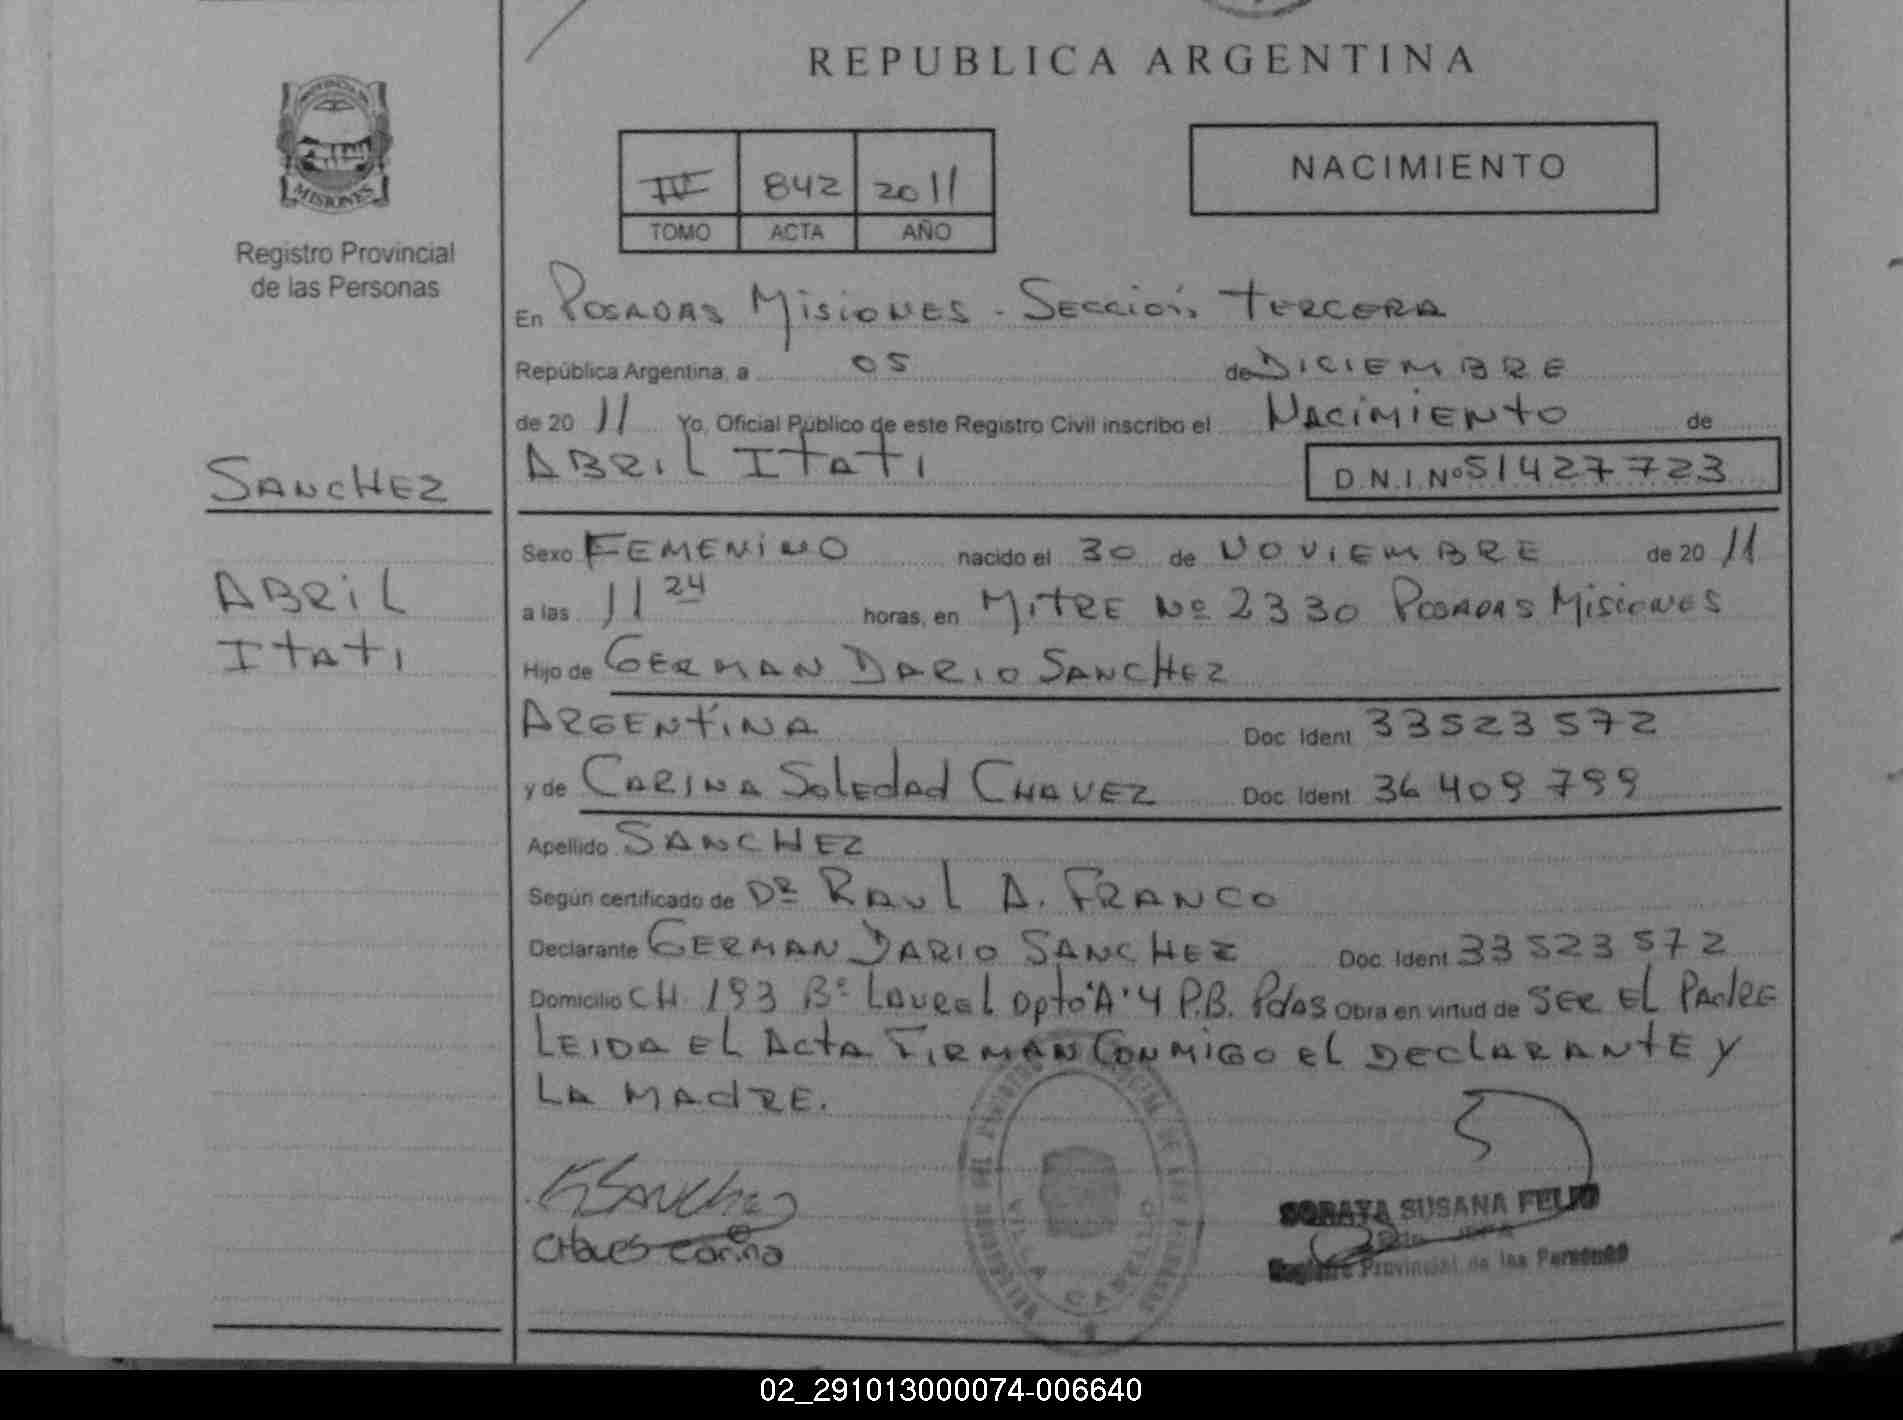 REPUBLICA ARGENTINA
MISIONES
Registro Provincial
de las Personas
842 2011
TOMO ACTA AÑO
NACIMIENTO
En POSADAS MISIONES - SECCIÓN TERCERA
República Argentina, a 05 de DICIEMBRE
de 20 11 Yo, Oficial Público de este Registro Civil inscribo el NACIMIENTO de
ABRIL ITATI D.N.I. Nº 51427723
SANCHEZ
ABRIL
ITATI
Sexo FEMENINO nacido el 30 de NOVIEMBRE de 20 11
a las 11 24 horas, en MITRE Nº 2330 POSADAS MISIONES
Hijo de GERMAN DARIO SANCHEZ
ARGENTINA Doc. Ident. 33523572
y de CARINA SOLEDAD CHAVEZ Doc. Ident. 36 409 799
Apellido SANCHEZ
Según certificado de DR RAUL A. FRANCO
Declarante GERMAN DARIO SANCHEZ Doc. Ident. 33 523 572
Domicilio CH. 193 Bº LAUREL Dpto "A" 4 P.B. Pdas Obra en virtud de SER EL PADRE
LEIDA EL ACTA FIRMAN CONMIGO EL DECLARANTE Y
LA MADRE.
GSANCHEZ
Carina
VILLA CABELLO
SORAYA SUSANA FELIU
Registro Provincial de las Personas
02_291013000074-006640